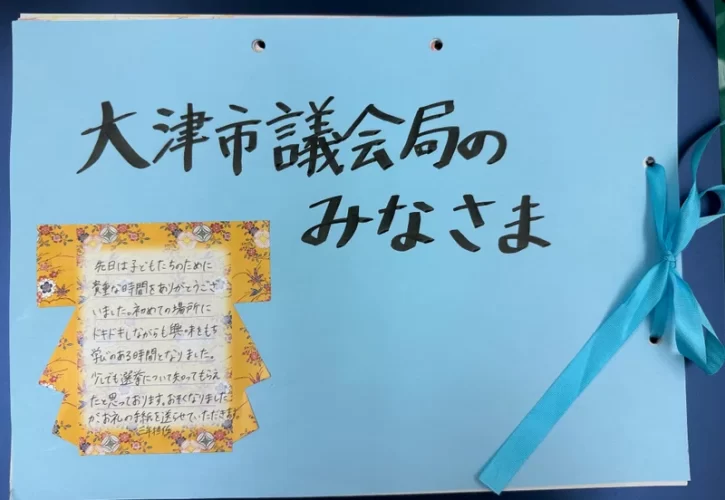 大津市議会局の
みなさま
先日は子どもたちのために
貴重な時間をありがとうござ
いました。初めての場所に
ドキドキしながらも興味をもち
学びのある時間となりました。
少しでも選挙について知ってもらえ
たと思っております。おそくなりました
が、お礼の手紙を送らせていただきます。
三年担任